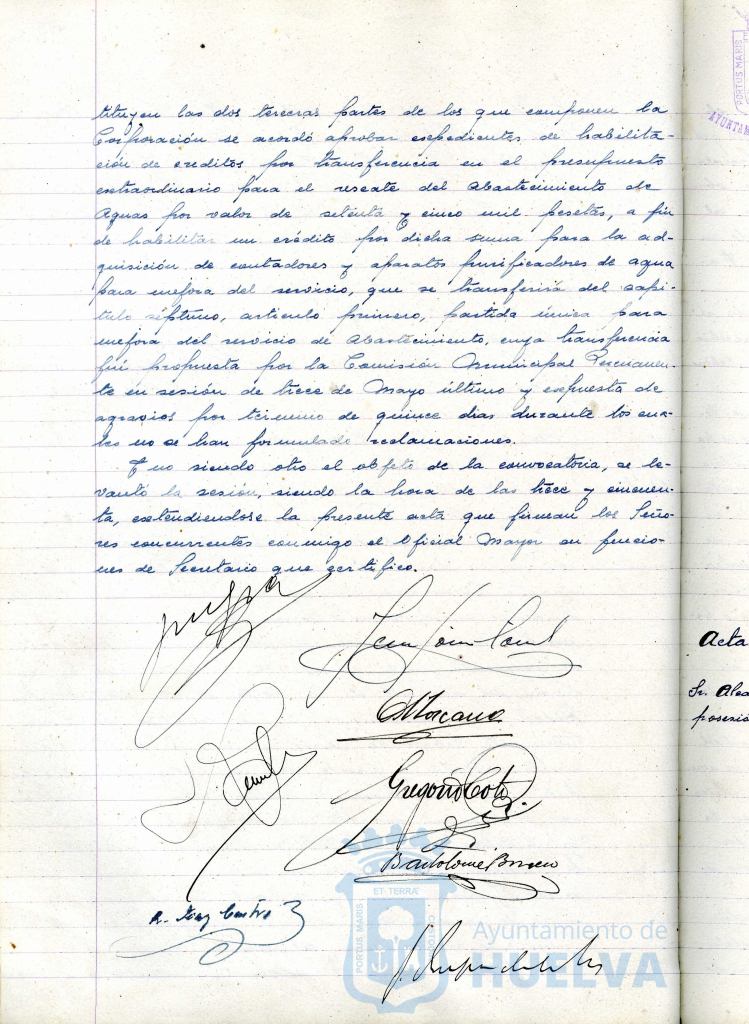 tituyen las dos terceras partes de los que componen la
Corporación se acordó aprobar expedientes de habilita-
ción de creditos por transferencia en el presupuesto
extraordinario para el rescate del Abastecimiento de
Aguas por valor de setenta y cinco mil pesetas, a fin
de habilitar un crédito por dicha suma para la ad-
quisición de contadores y aparatos purificadores de agua
para mejora del servicio, que se transferirá del capi-
tulo séptimo, articulo primero, partida única para
mejora del servicio de Abastecimiento, cuya transferencia
fué propuesta por la Comisión Municipal Permanen-
te en sesión de trece de Mayo último y expuesta de
agravios por término de quince dias durante los cua-
les no se han formulado reclamaciones.
Y no siendo otro el objeto de la convocatoria, se le-
vantó la sesión, siendo la hora de las trece y cincuen-
ta, extendiendose la presente acta que firman los Seño-
res concurrentes conmigo el Oficial Mayor en funcio-
nes de Secretario que certifico.
Gregorio
Bartolomé
R. Castro
PORTUS MARIS
ET TERRÆ
CUSTODIA
Ayuntamiento de
HUELVA
PORTUS MARIS
AYUNTAM
Acta
Sr. Alca
posesió